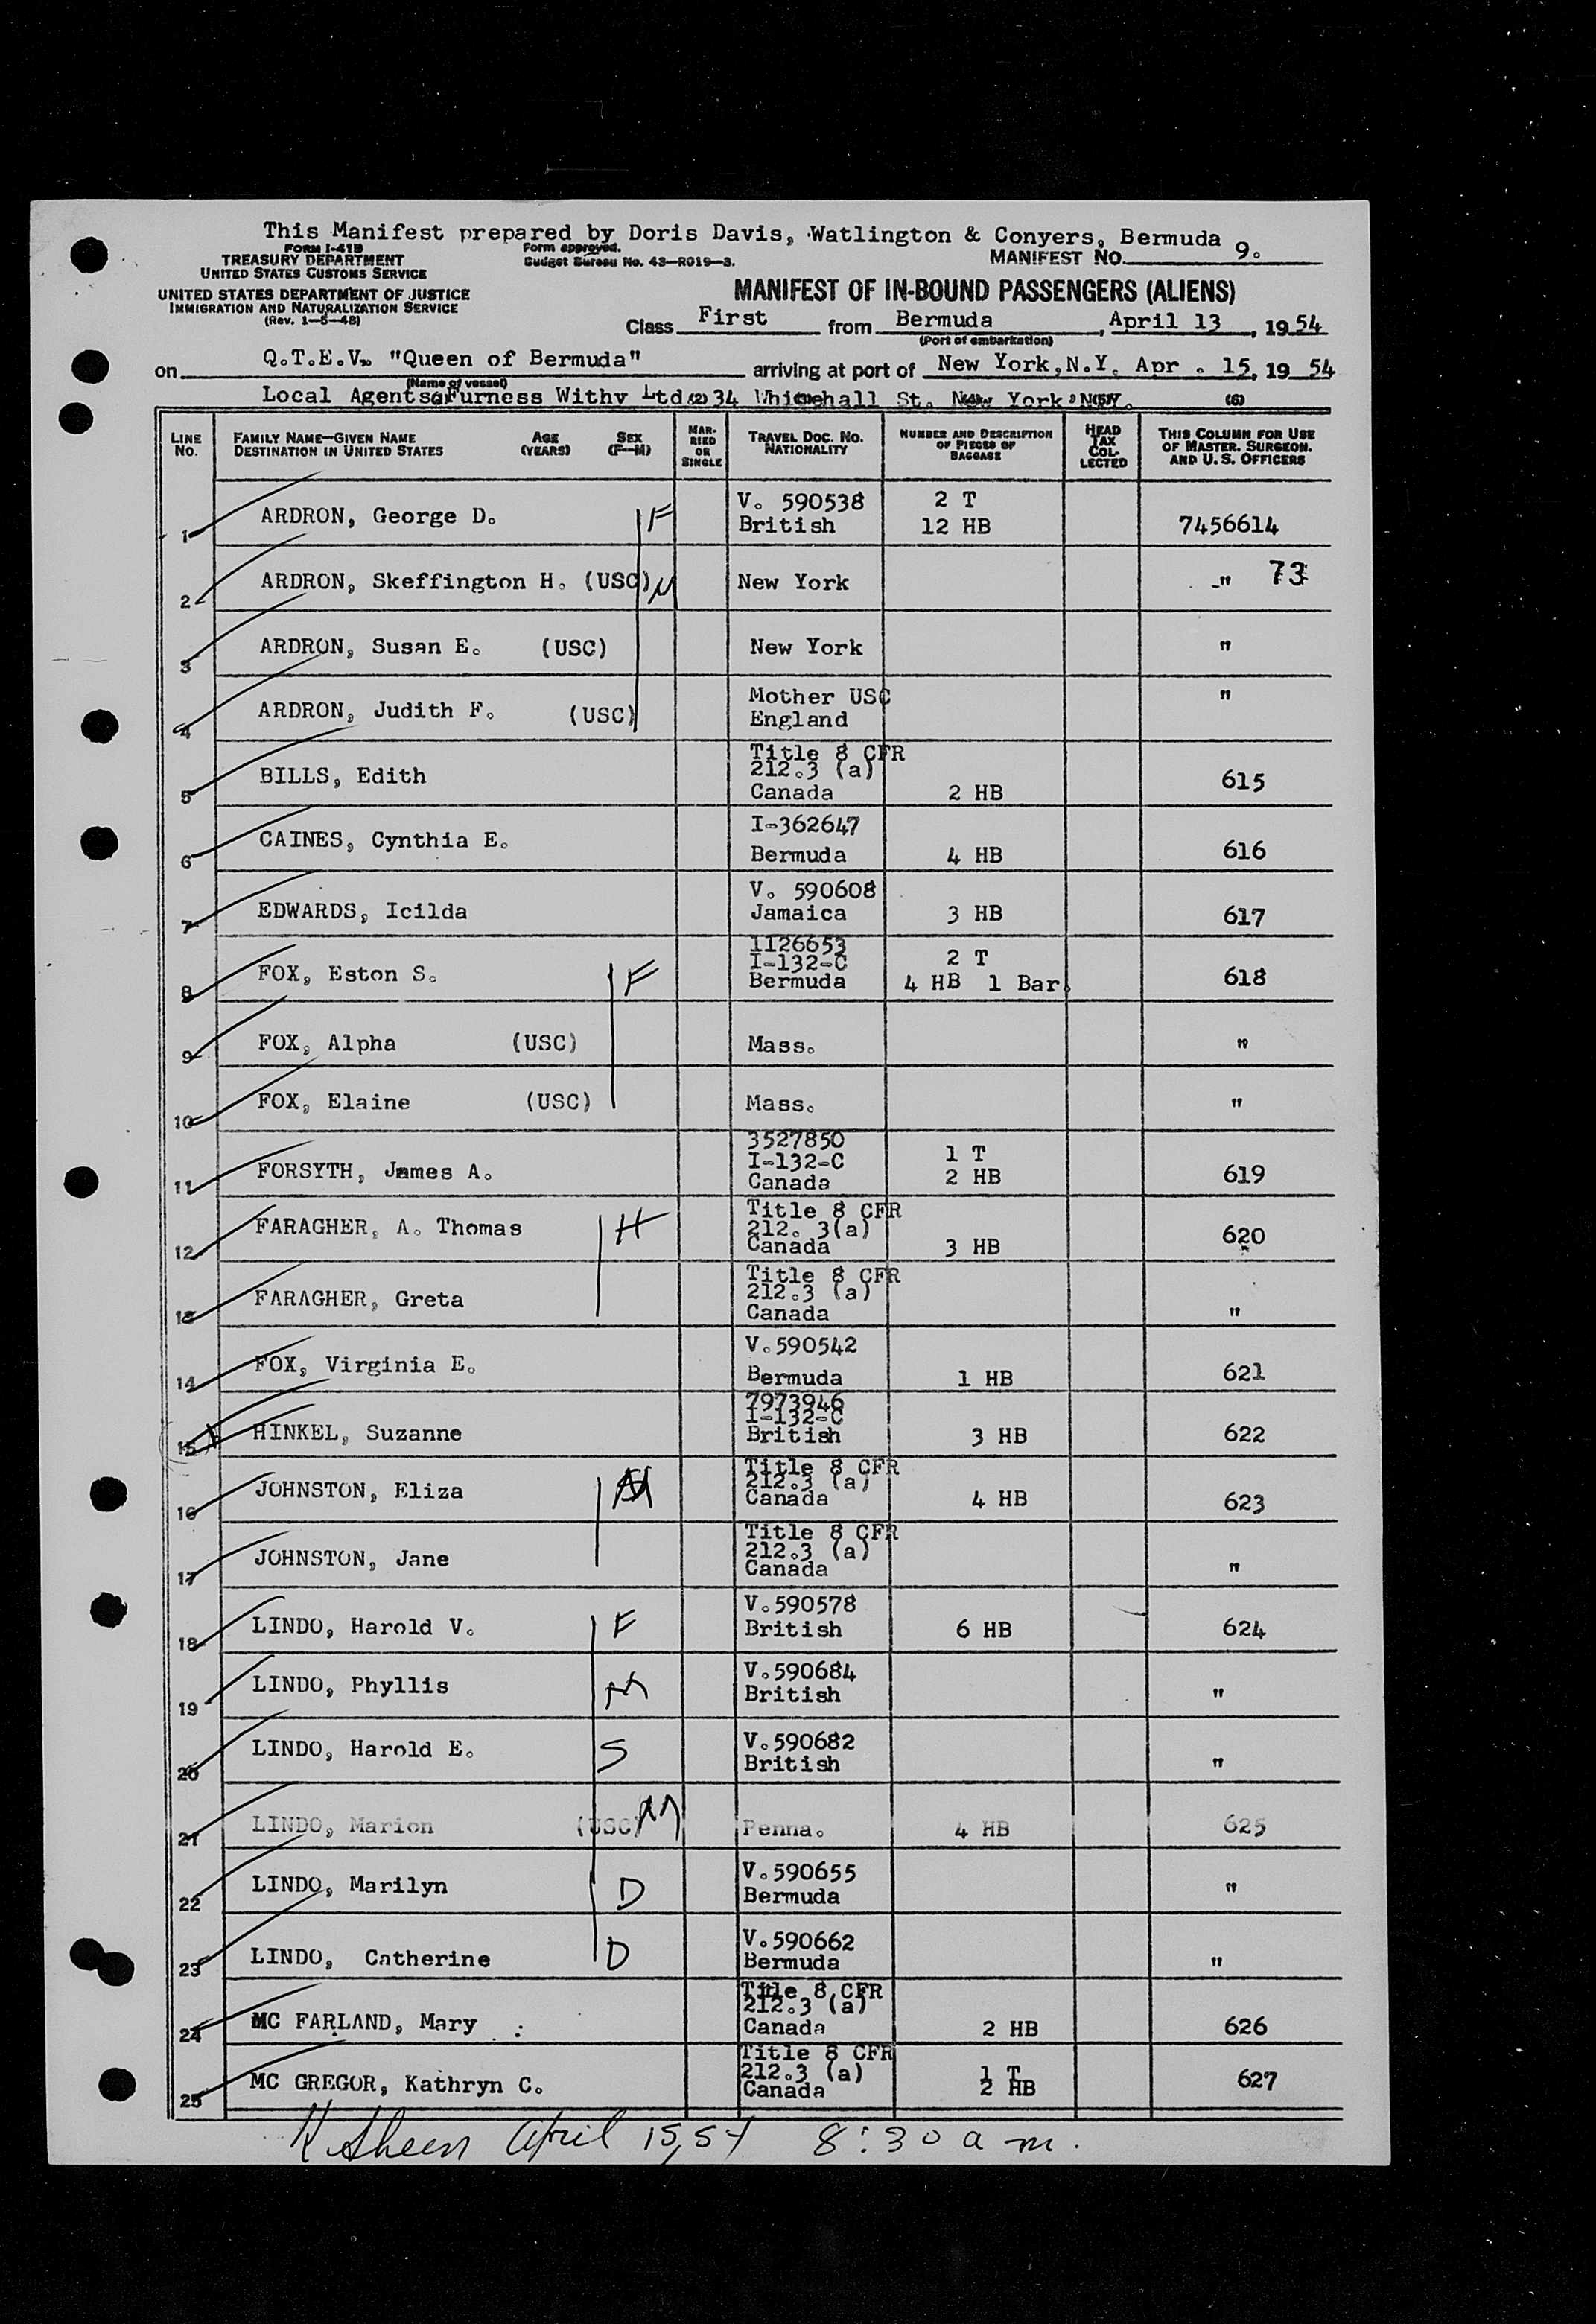 This Manifest prepared by Doris Davis, Watlington & Conyers, Bermuda
FORM I-415
TREASURY DEPARTMENT
UNITED STATES CUSTOMS SERVICE
Form approved.
Budget Bureau No. 43—R019—3.
MANIFEST NO. 9.
UNITED STATES DEPARTMENT OF JUSTICE
IMMIGRATION AND NATURALIZATION SERVICE
(Rev. 1—5—48)
MANIFEST OF IN-BOUND PASSENGERS (ALIENS)
Class First from Bermuda, April 13, 1954
(Port of embarkation)
on Q.T.E.V. "Queen of Bermuda" arriving at port of New York, N.Y. Apr. 15, 1954
(Name of vessel)
Local Agents Furness Withy Ltd (2) 34 Whitehall St. New York, N.Y. (6)
LINE No. FAMILY NAME—GIVEN NAME DESTINATION IN UNITED STATES AGE (YEARS) SEX (F—M) MARRIED OR SINGLE TRAVEL DOC. NO. NATIONALITY NUMBER AND DESCRIPTION OF PIECES OF BAGGAGE HEAD TAX COLLECTED THIS COLUMN FOR USE OF MASTER, SURGEON, AND U. S. OFFICERS
1 ARDRON, George D. F V. 590538 British 2 T 12 HB 7456614
2 ARDRON, Skeffington H. (USC) M New York " 73
3 ARDRON, Susan E. (USC) New York "
4 ARDRON, Judith F. (USC) Mother USC England "
5 BILLS, Edith Title 8 CFR 212.3 (a) Canada 2 HB 615
6 CAINES, Cynthia E. I-362647 Bermuda 4 HB 616
7 EDWARDS, Icilda V. 590608 Jamaica 3 HB 617
8 FOX, Eston S. F 1126653 I-132-C Bermuda 2 T 4 HB 1 Bar. 618
9 FOX, Alpha (USC) Mass. "
10 FOX, Elaine (USC) Mass. "
11 FORSYTH, James A. 3527850 I-132-C Canada 1 T 2 HB 619
12 FARAGHER, A. Thomas H Title 8 CFR 212. 3(a) Canada 3 HB 620
13 FARAGHER, Greta Title 8 CFR 212.3 (a) Canada "
14 FOX, Virginia E. V.590542 Bermuda 1 HB 621
15 HINKEL, Suzanne 7973946 I-132-C British 3 HB 622
16 JOHNSTON, Eliza Title 8 CFR 212.3 (a) Canada 4 HB 623
17 JOHNSTON, Jane Title 8 CFR 212.3 (a) Canada "
18 LINDO, Harold V. F V.590578 British 6 HB 624
19 LINDO, Phyllis M V.590684 British "
20 LINDO, Harold E. S V.590682 British "
21 LINDO, Marion (USC) M Penna. 4 HB 625
22 LINDO, Marilyn D V.590655 Bermuda "
23 LINDO, Catherine D V.590662 Bermuda "
24 MC FARLAND, Mary : Title 8 CFR 212.3 (a) Canada 2 HB 626
25 MC GREGOR, Kathryn C. Title 8 CFR 212.3 (a) Canada 1 T 2 HB 627
April 15, 54 8:30 a m.